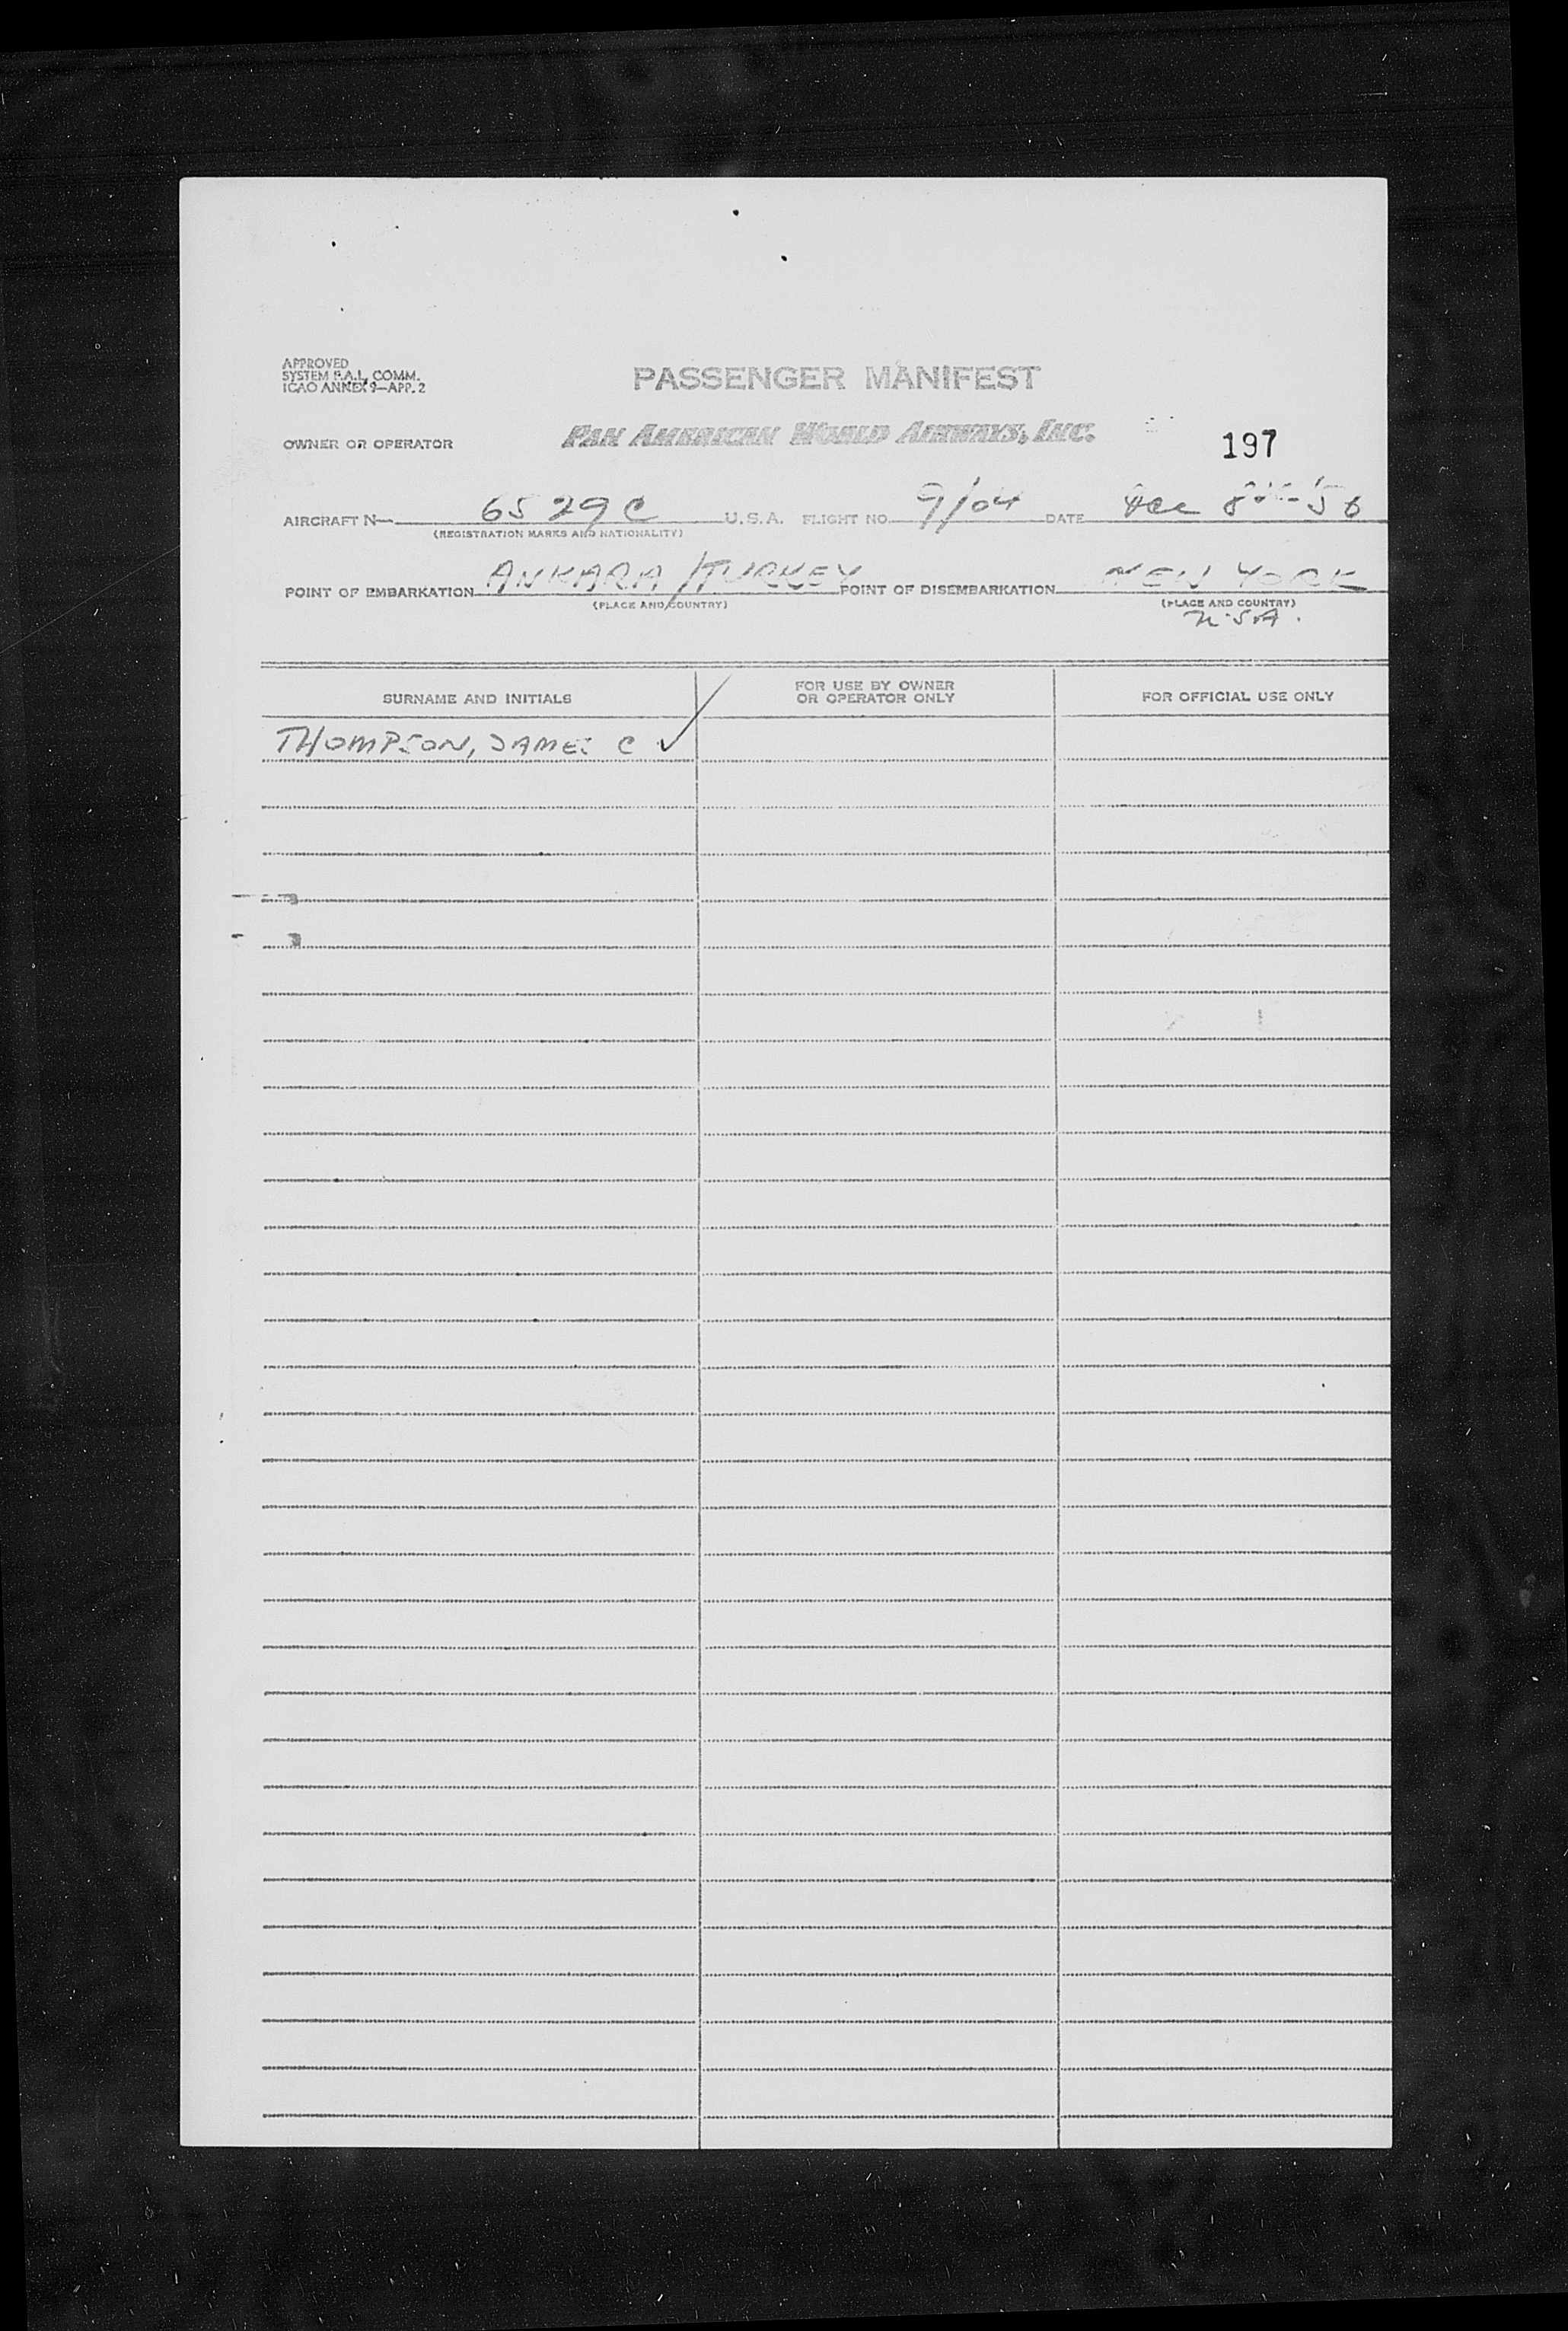 APPROVED
SYSTEM F.A.L. COMM.
ICAO ANNEX 9—APP. 2
PASSENGER MANIFEST
OWNER OR OPERATOR
PAN AMERICAN WORLD AIRWAYS, INC.
197
AIRCRAFT N— 6529C U.S.A. FLIGHT NO. 9/04 DATE Dec 8th-'56
(REGISTRATION MARKS AND NATIONALITY)
POINT OF EMBARKATION ANKARA/TURKEY POINT OF DISEMBARKATION NEW YORK
(PLACE AND COUNTRY) (PLACE AND COUNTRY)
U.S.A.
SURNAME AND INITIALS
FOR USE BY OWNER
OR OPERATOR ONLY
FOR OFFICIAL USE ONLY
THOMPSON, JAMES C ✓